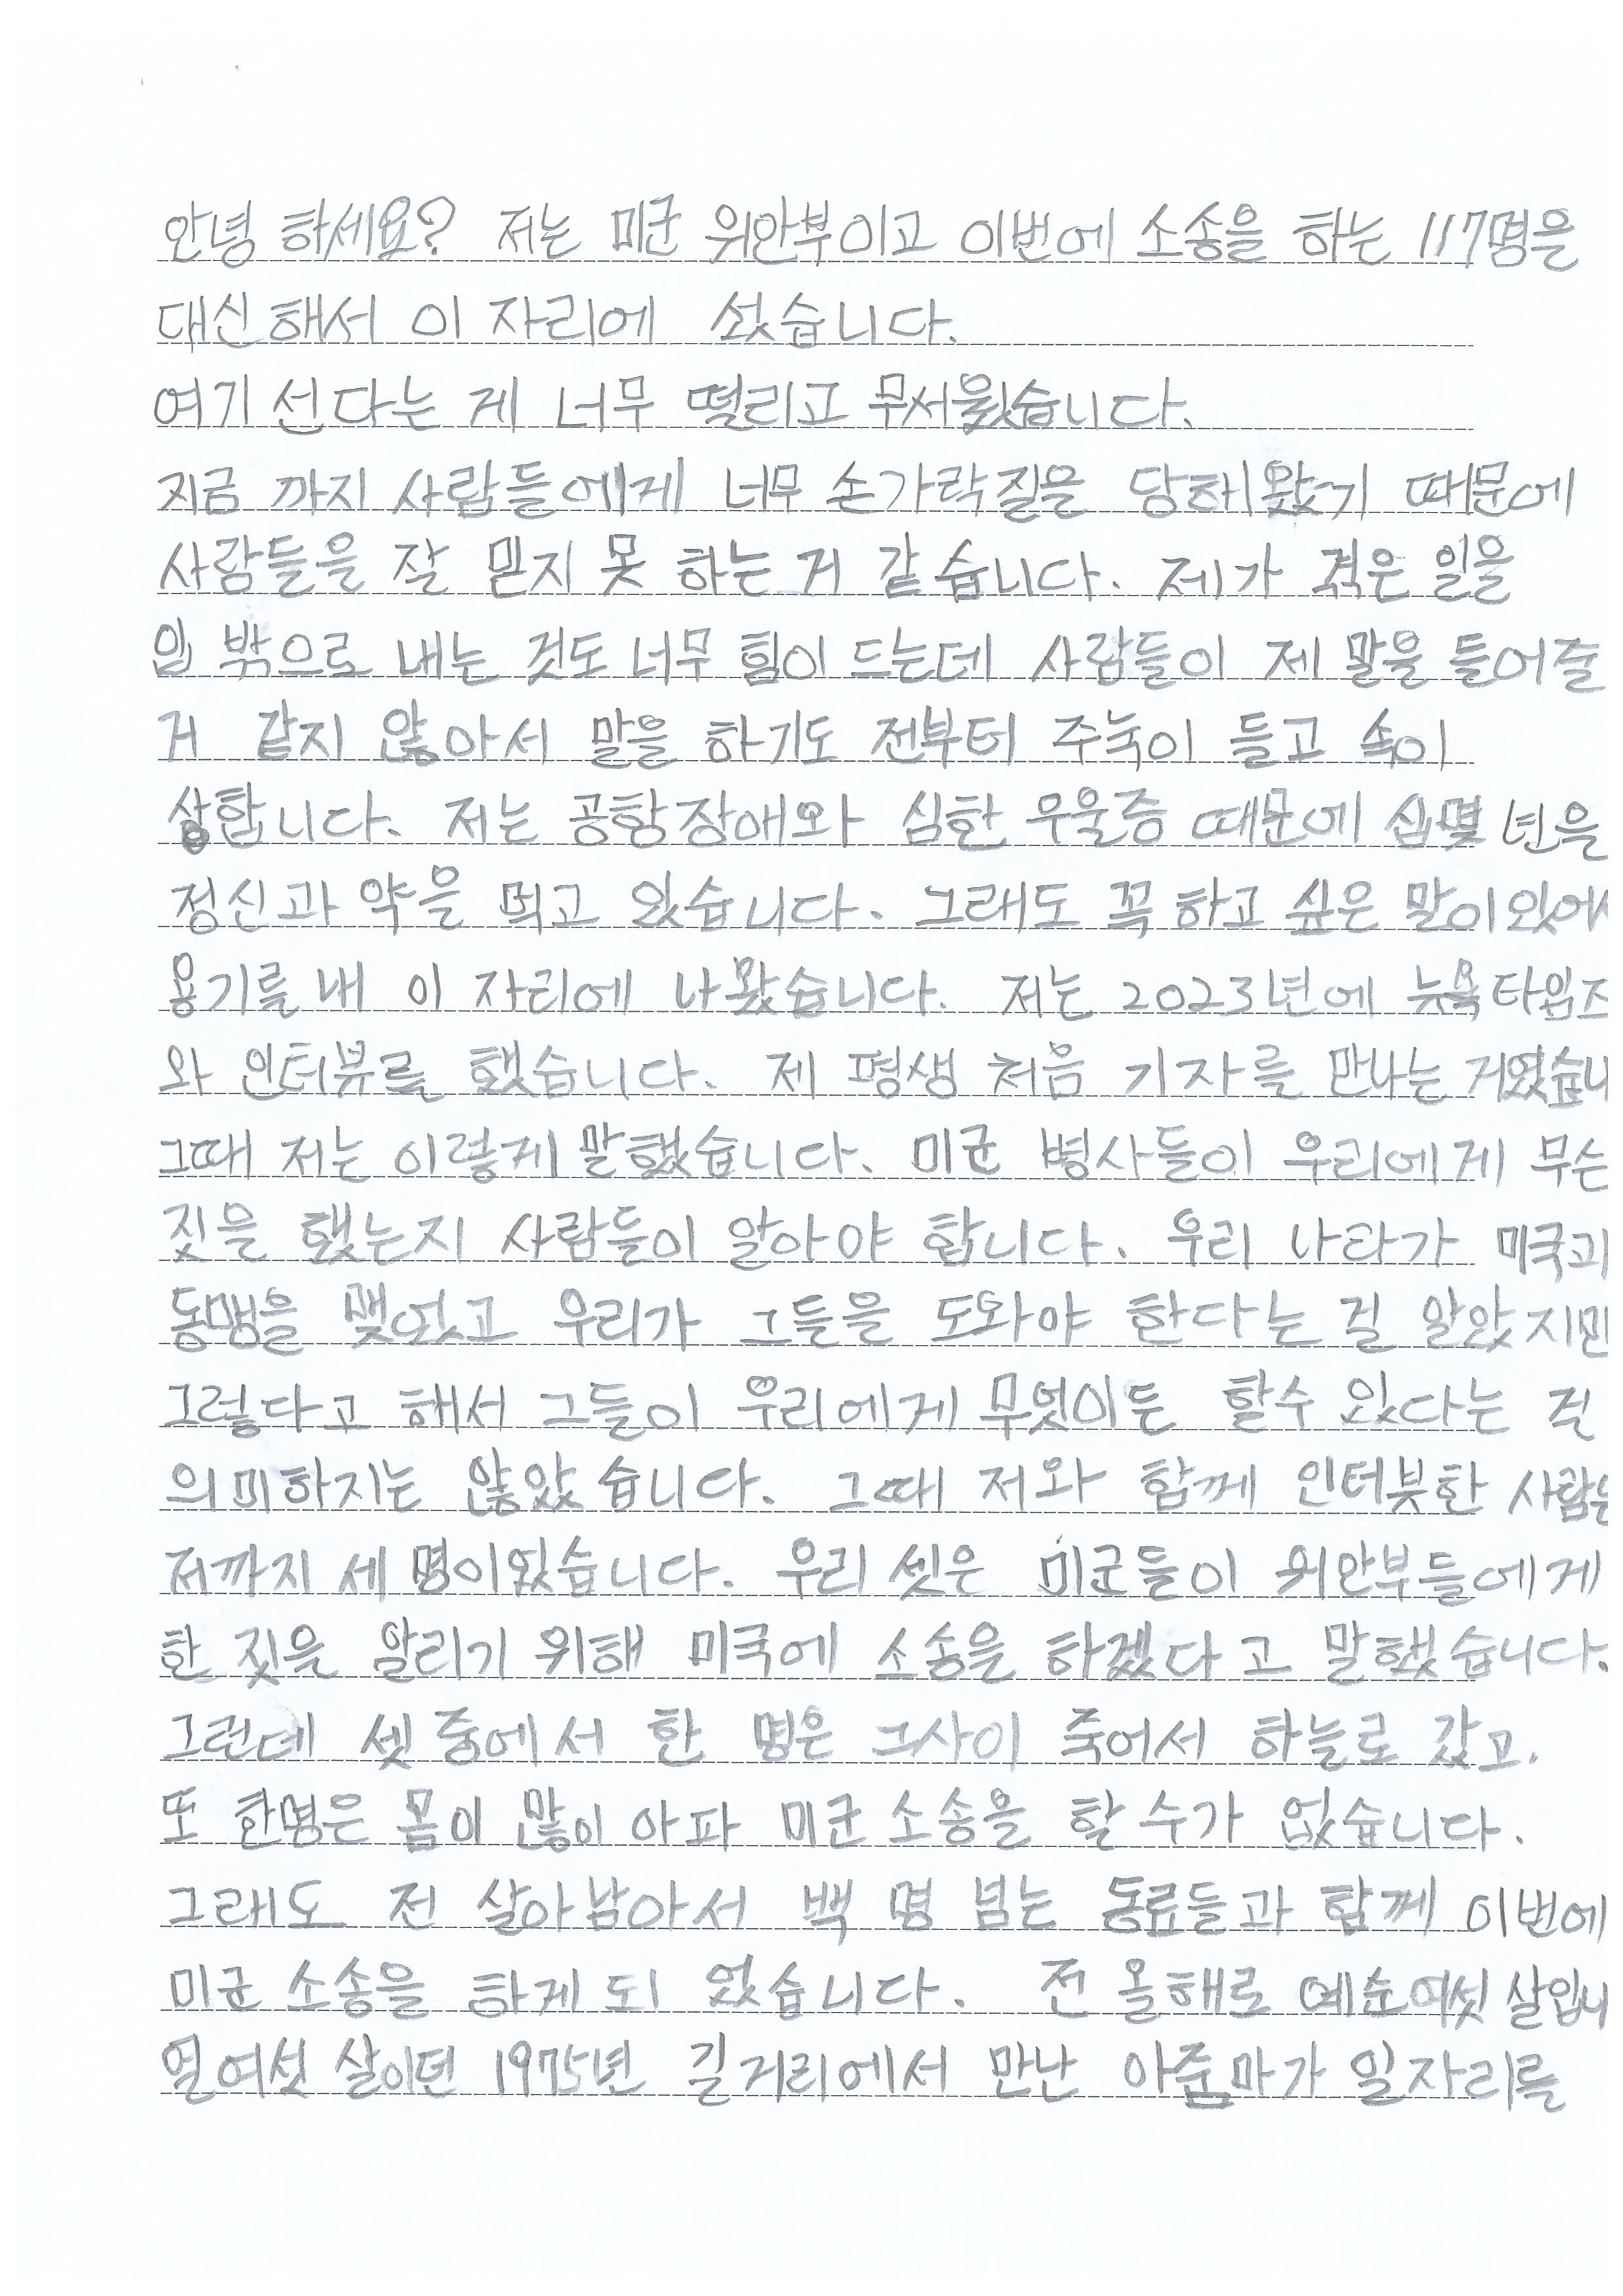 안녕 하세요? 저는 미군 위안부이고 이번에 소송을 하는 117명을
대신해서 이 자리에 섰습니다.
여기 선다는 게 너무 떨리고 무서웠습니다.
지금 까지 사람들에게 너무 손가락질을 당해왔기 때문에
사람들을 잘 믿지 못 하는 거 같습니다. 제가 겪은 일을
입 밖으로 내는 것도 너무 힘이 드는데 사람들이 제 말을 들어줄
거 같지 않아서 말을 하기도 전부터 주눅이 들고 속이
상합니다. 저는 공항장애와 심한 우울증 때문에 십몇 년을
정신과 약을 먹고 있습니다. 그래도 꼭 하고 싶은 말이 있어서
용기를 내 이 자리에 나왔습니다. 저는 2023년에 뉴욕타임즈
와 인터뷰를 했습니다. 제 평생 처음 기자를 만나는 거였습니
그때 저는 이렇게 말했습니다. 미군 병사들이 우리에게 무슨
짓을 했는지 사람들이 알아야 합니다. 우리 나라가 미국과
동맹을 맺었고 우리가 그들을 도와야 한다는 걸 알았지만
그렇다고 해서 그들이 우리에게 무엇이든 할수 있다는 걸
의미하지는 않았습니다. 그때 저와 함께 인터뷰한 사람은
저까지 세 명이었습니다. 우리 셋은 미군들이 위안부들에게
한 짓을 알리기 위해 미국에 소송을 하겠다고 말했습니다.
그런데 셋 중에서 한 명은 그사이 죽어서 하늘로 갔고.
또 한명은 몸이 많이 아파 미군 소송을 할 수가 없습니다.
그래도 전 살아남아서 백 명 넘는 동료들과 함께 이번에
미군 소송을 하게 되 었습니다. 전 올해로 예순여섯 살입니
열여섯 살이던 1975년 길거리에서 만난 아줌마가 일자리를